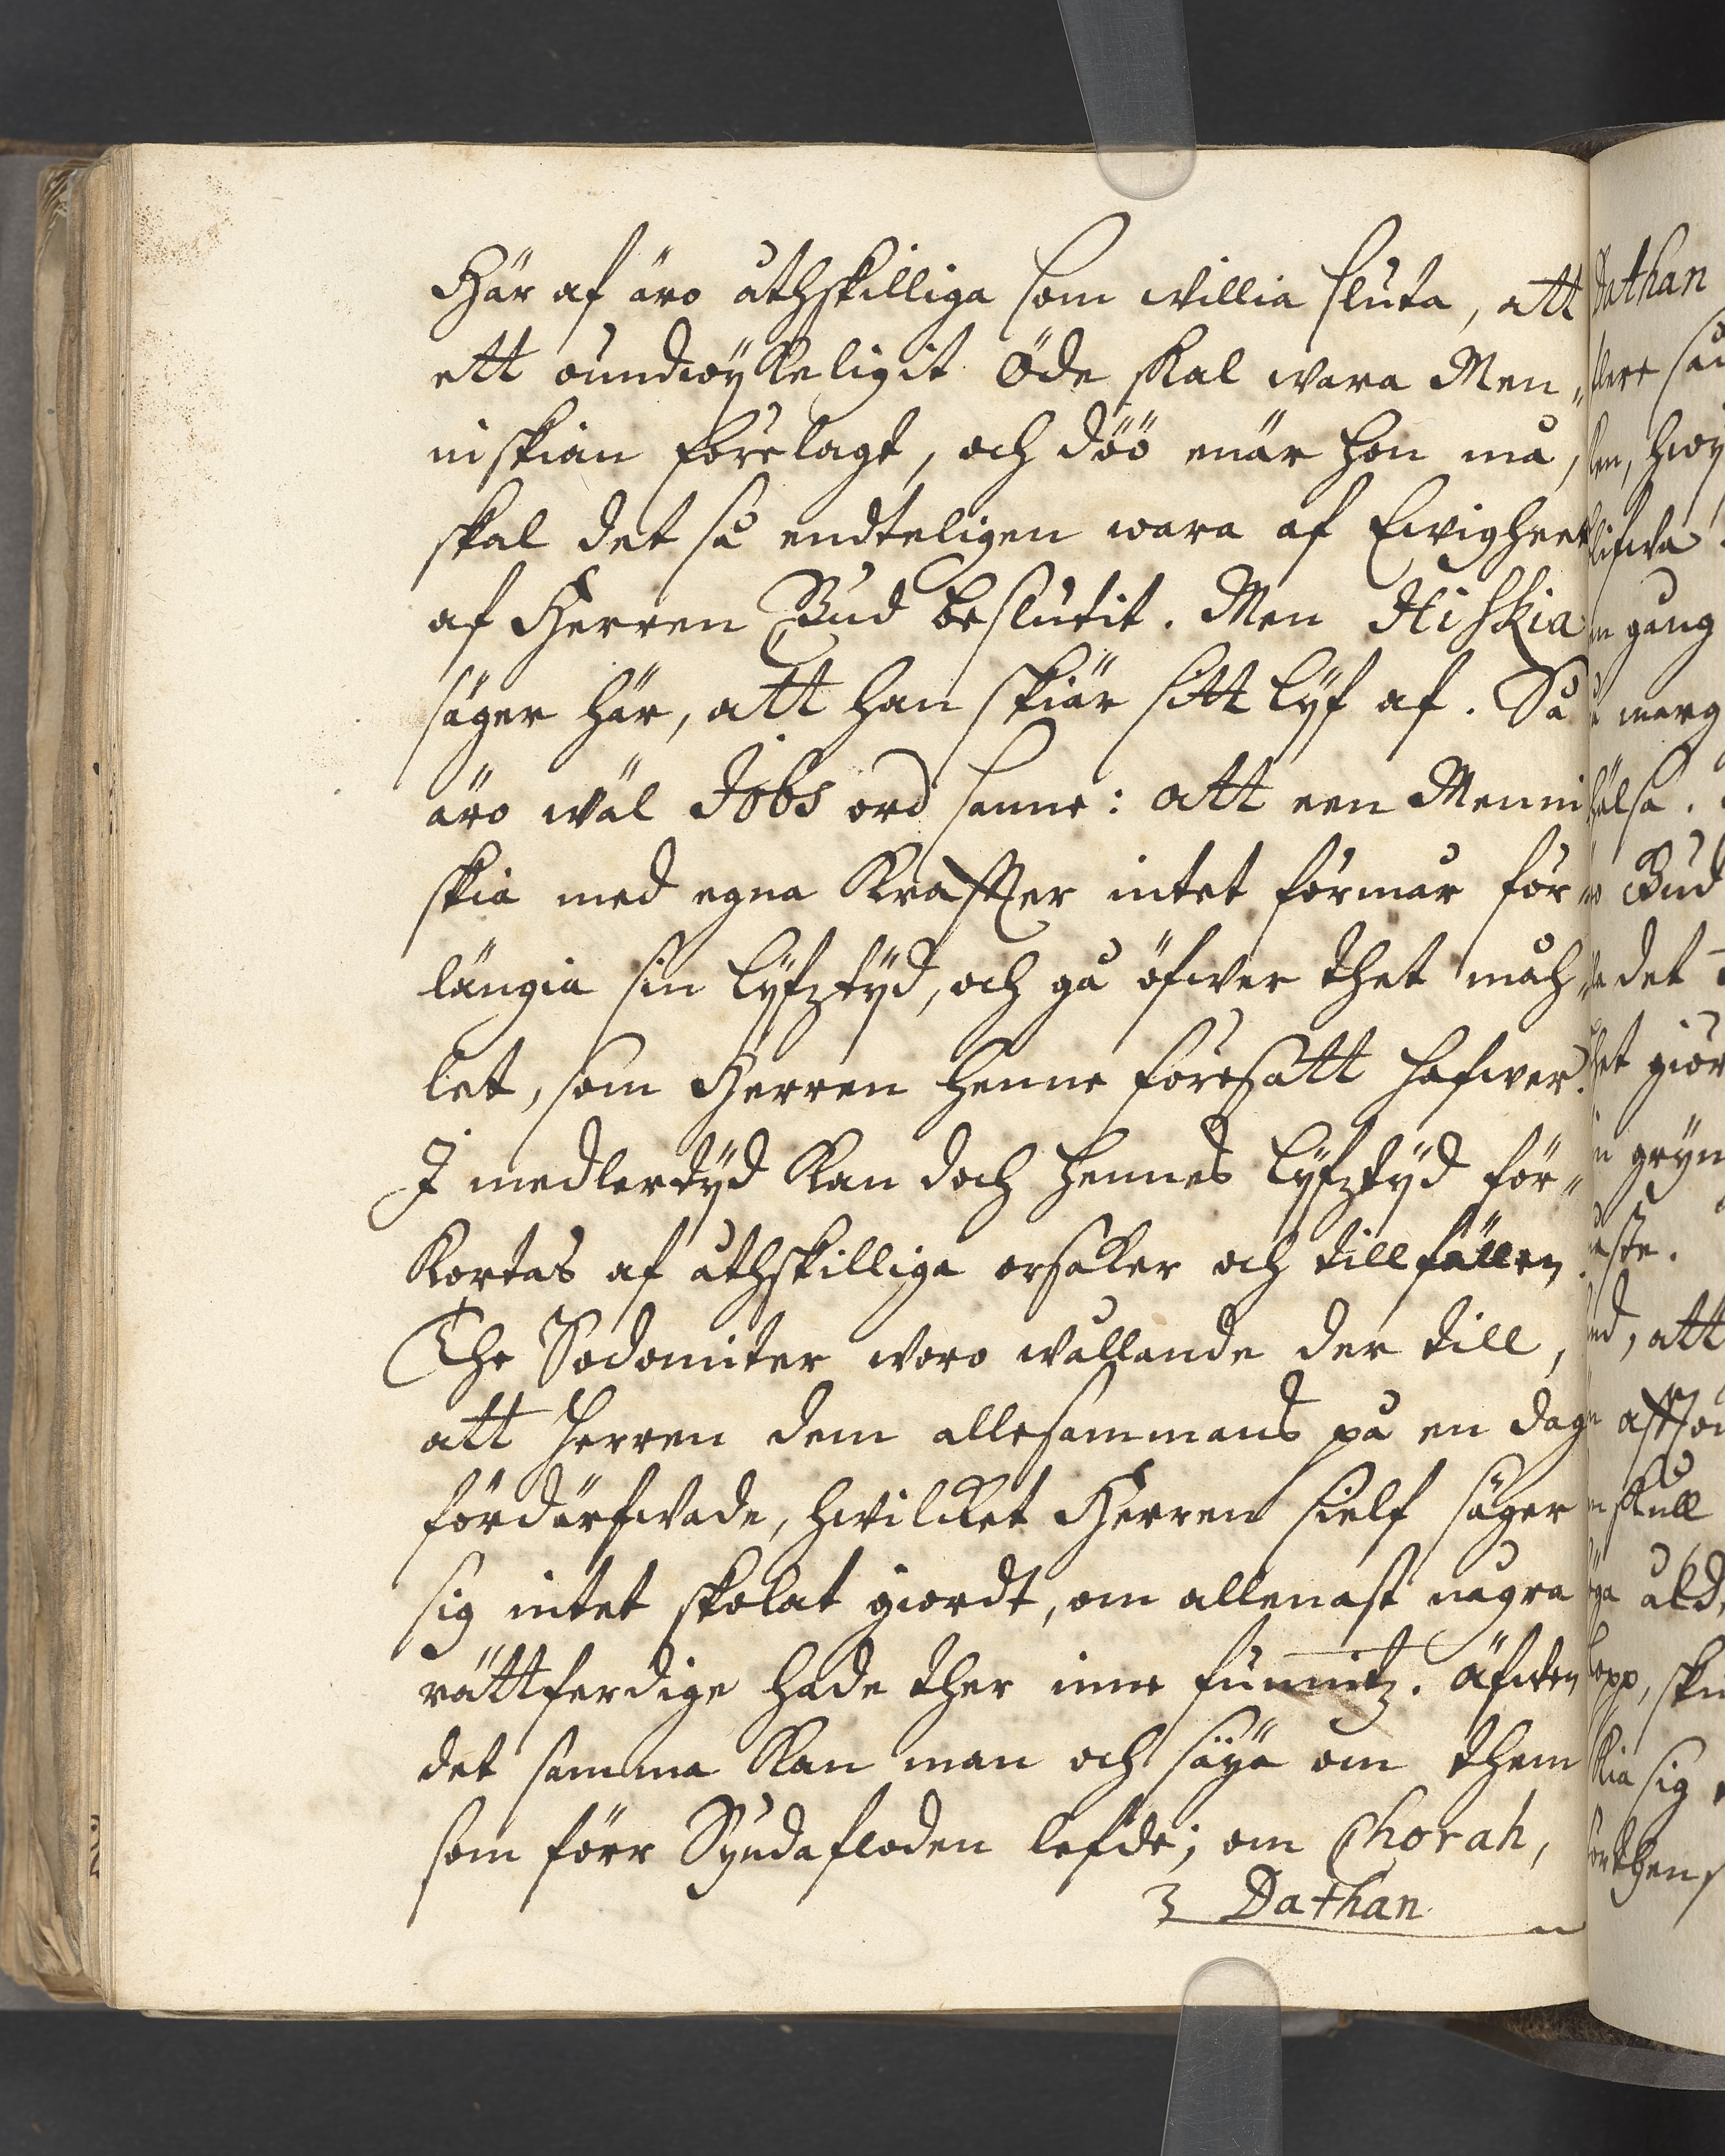 Här af äro åthskilliga som willia sluta, att
ett oundwÿkeligit Öde skal wara Men„
niskian förelagt, och döö enär hon må,
skal det så endteligen wara af Ewigheet
af Herren Gud beslutit. Men Hiskia
säger här, att han skiär sitt lÿf af. Så
äro wäl Jobs ord sanne: att een Menni
skia med egna Kraffter intet förmår för„
längia sin lÿfztÿd, och gå öfwer thet måh„
let, som Herren henne föresatt hafwer.
I medlertÿd kan doch hennes lÿfztÿd för„
kortas af åthskilliga orsaker och tillfällen.
The Sodomiter woro wållande der till,
att Herren dem allesammans på en dag
fördärfwade, hwilket Herren sielf säger
sig intet skolat giordt, om allenast några
rättferdige hade ther inne funnitz. Äfwen
det samma kan man och säÿa om them
som förr Syndafloden lefde; om Chorah,
3 Dathan